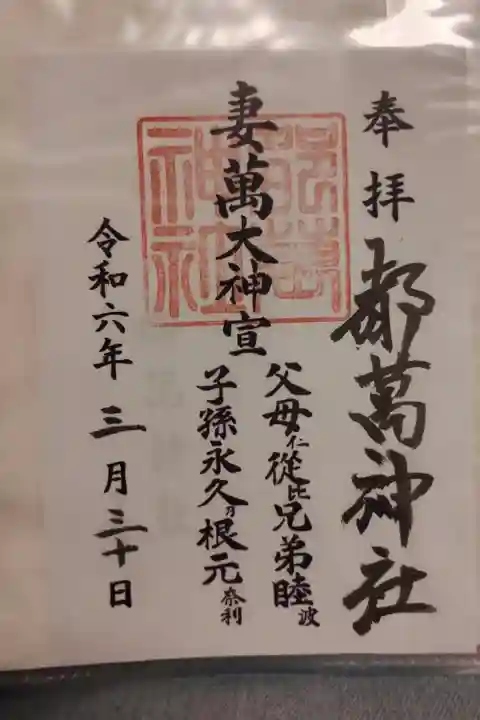 奉拝
都萬神社
妻萬大神宣
父母仁従比兄弟睦波
子孫永久乃根元奈利
令和六年三月三十日
都萬神社